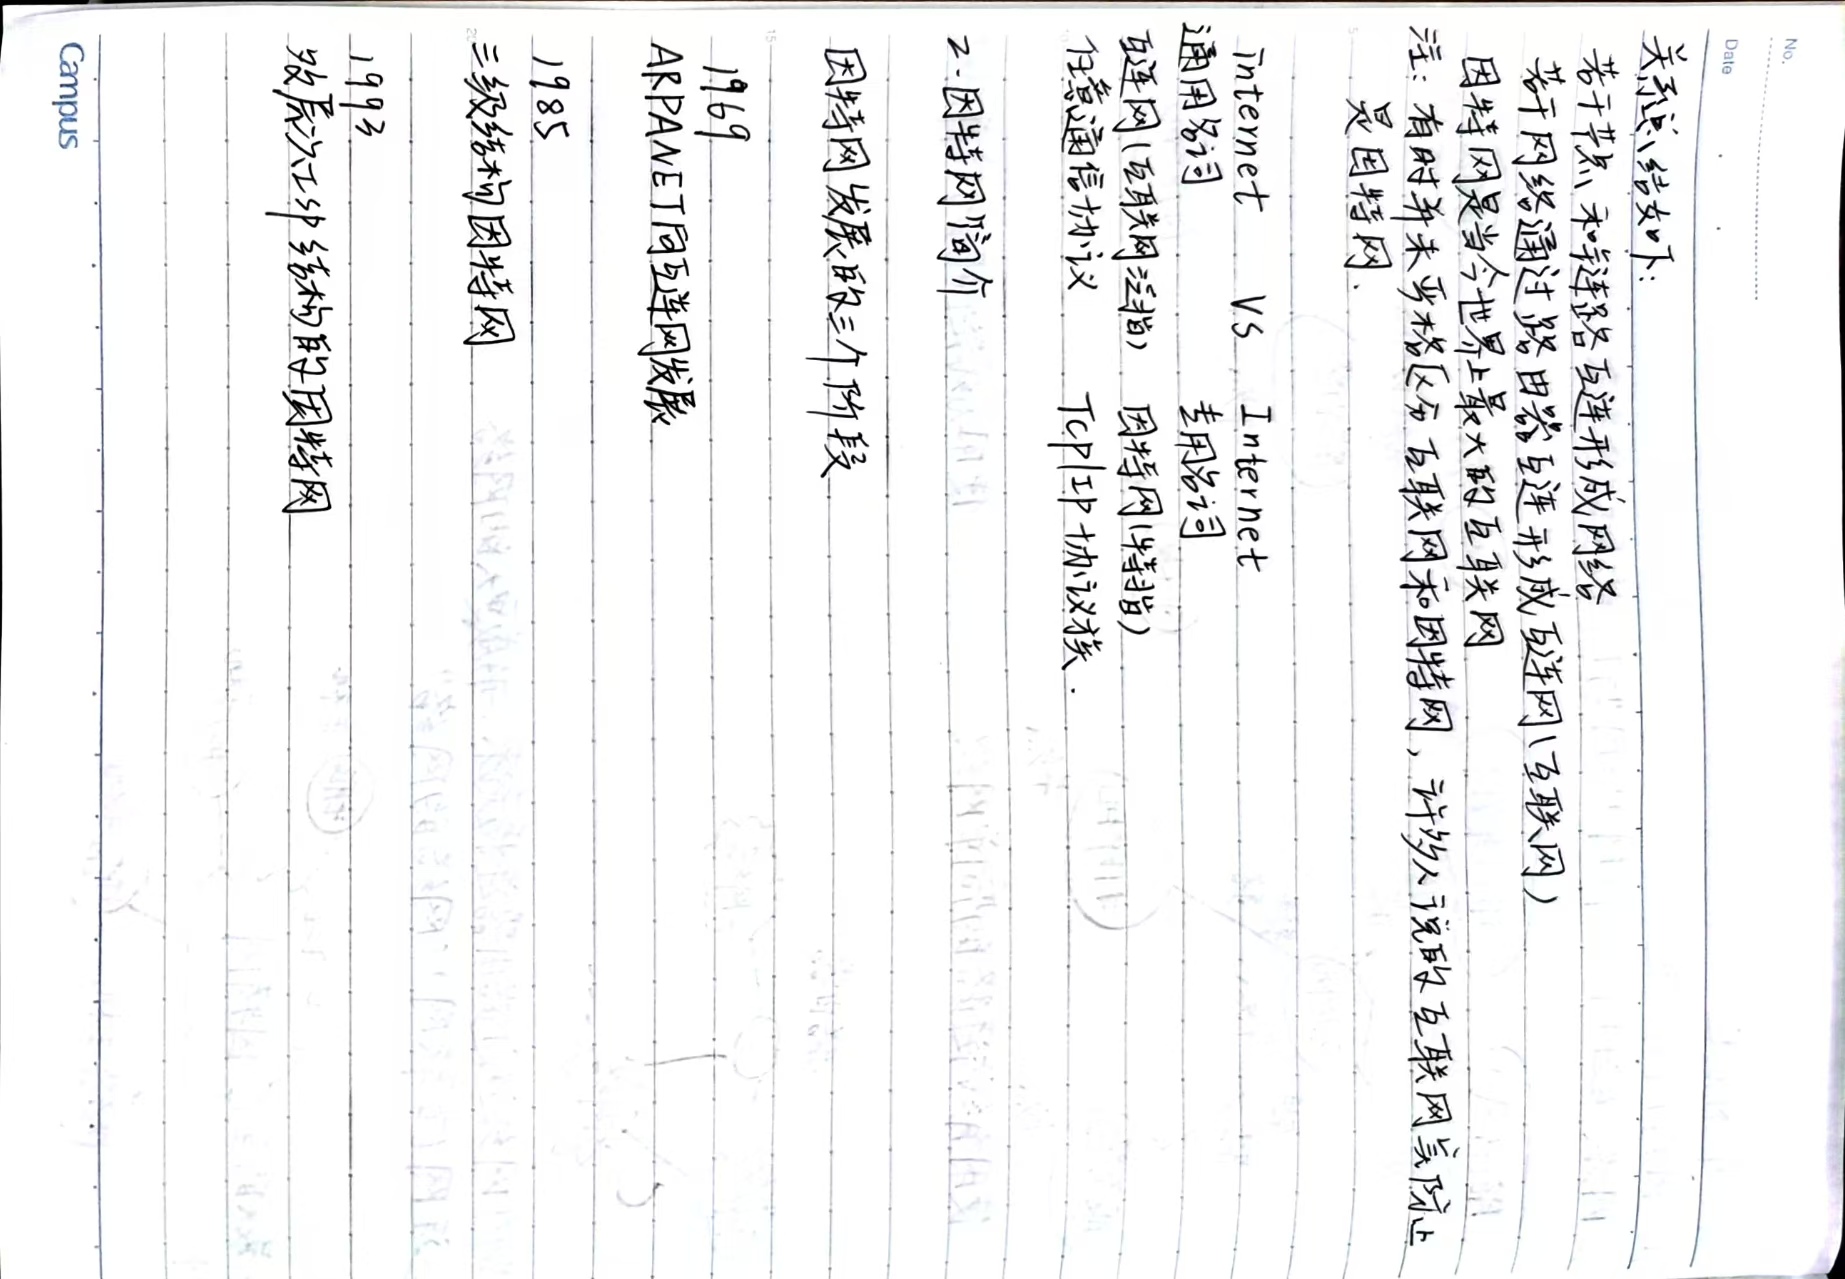 No.
Date
关系总结如下:
若干节点和链路互连形成网络
若干网络通过路由器互连形成互连网(互联网)
因特网是当今世界上最大的互联网
注: 有时并未严格区分互联网和因特网, 许多人说的互联网实际上
是因特网.
internet VS Internet
通用名词 专用名词
互连网(互联网泛指) 因特网(特指)
任意通信协议 TCP/IP协议族.
2.因特网简介
因特网发展的三个阶段
15
1969
ARPANET向互连网发展
1985
三级结构因特网
20
1993
多层次ISP结构的因特网
Campus